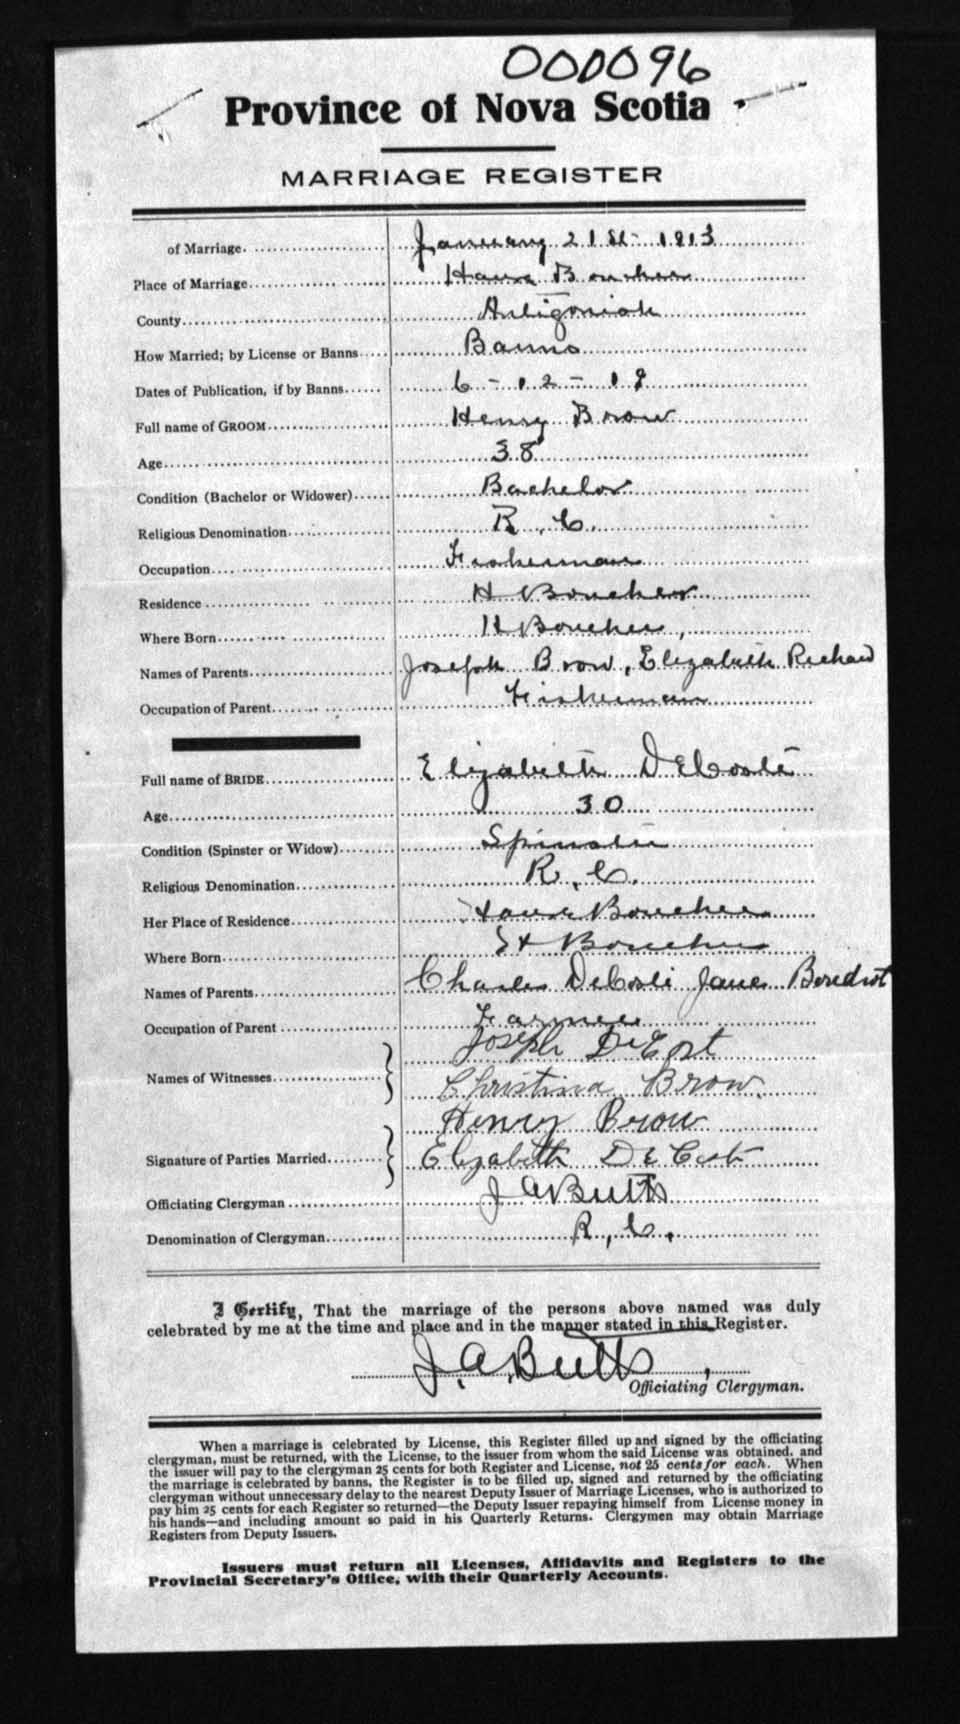 000096
Province of Nova Scotia
MARRIAGE REGISTER
of Marriage January 21st 1913
Place of Marriage Havre Boucher
County Antigonish
How Married; by License or Banns Banns
Dates of Publication, if by Banns 6 - 12 - 19
Full name of GROOM Henry Brow
Age 38
Condition (Bachelor or Widower) Bachelor
Religious Denomination R.C.
Occupation Fisherman
Residence H Boucher
Where Born H Boucher,
Names of Parents Joseph Brow, Elizabeth Richard
Occupation of Parent Fisherman
Full name of BRIDE Elizabeth DeCoste
Age 30
Condition (Spinster or Widow) Spinster
Religious Denomination R.C.
Her Place of Residence Havre Boucher
Where Born H Boucher
Names of Parents Charles DeCoste Jane Benedict
Occupation of Parent Farmer
Joseph DeCost
Names of Witnesses
Christina Brow.
Henry Brow
Signature of Parties Married Elizabeth DeCost
Officiating Clergyman J A Butts
Denomination of Clergyman R.C.
I Certify, That the marriage of the persons above named was duly
celebrated by me at the time and place and in the manner stated in this Register.
J. A. Butts
Officiating Clergyman.
When a marriage is celebrated by License, this Register filled up and signed by the officiating
clergyman, must be returned, with the License, to the issuer from whom the said License was obtained, and
the issuer will pay to the clergyman 25 cents for both Register and License, not 25 cents for each. When
the marriage is celebrated by banns, the Register is to be filled up, signed and returned by the officiating
clergyman without unnecessary delay to the nearest Deputy Issuer of Marriage Licenses, who is authorized to
pay him 25 cents for each Register so returned—the Deputy Issuer repaying himself from License money in
his hands—and including amount so paid in his Quarterly Returns. Clergymen may obtain Marriage
Registers from Deputy Issuers.
Issuers must return all Licenses, Affidavits and Registers to the
Provincial Secretary's Office, with their Quarterly Accounts.